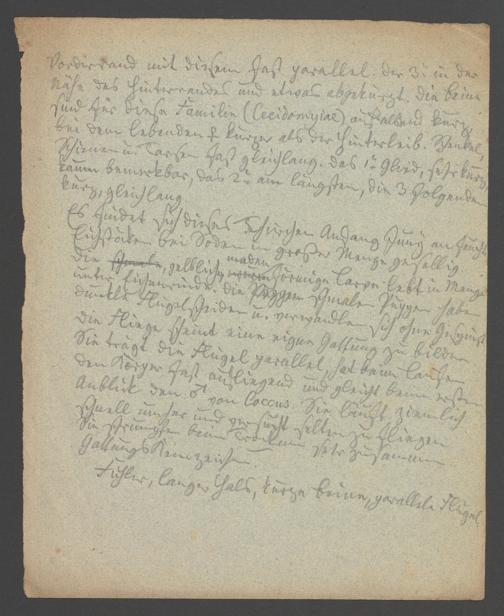 Vorderrand mit diesem fast parallel: der 3te in der
Nähe des Hinterrandes und etwas abgekürzt. die Beine
sind für diese Familie (Cecidomyiae) auffallend kurz,
bei dem lebenden ♀ kürzer als der Hinterleib. Schenkel,
Schienen u. Tarsen fast gleichlang. das 1te Glied, sehr kurz,
kaum bemerkbar, das 2te am längsten, die 3 folgenden
kurz, gleichlang.
Es findet sich dieses Thierchen Anfang Juny an
bei Soden in großer Menge gesellig
die schmale, gelblich madenförmige Larve lebt in Menge
unter Eichenrinde. die Puppen schmale Puppen haben
dunkle Flügelscheiden u. verwandeln sich ohne Gespinst
die Fliege scheint eine eigne Gattung zu bilden
Sie trägt die Flügel parallel, hat beim laufen
den Körper fast aufliegend und gleicht beim ersten
Anblick den ♂ von Coccus. Sie läuft ziemlich
schnell umher und versucht selten zu fliegen
Sie schrumpfen beim Trocknen sehr zusammen
Gattungs Kennzeichen
Fühler, langer Hals, kurze Beine, parallele Flügel